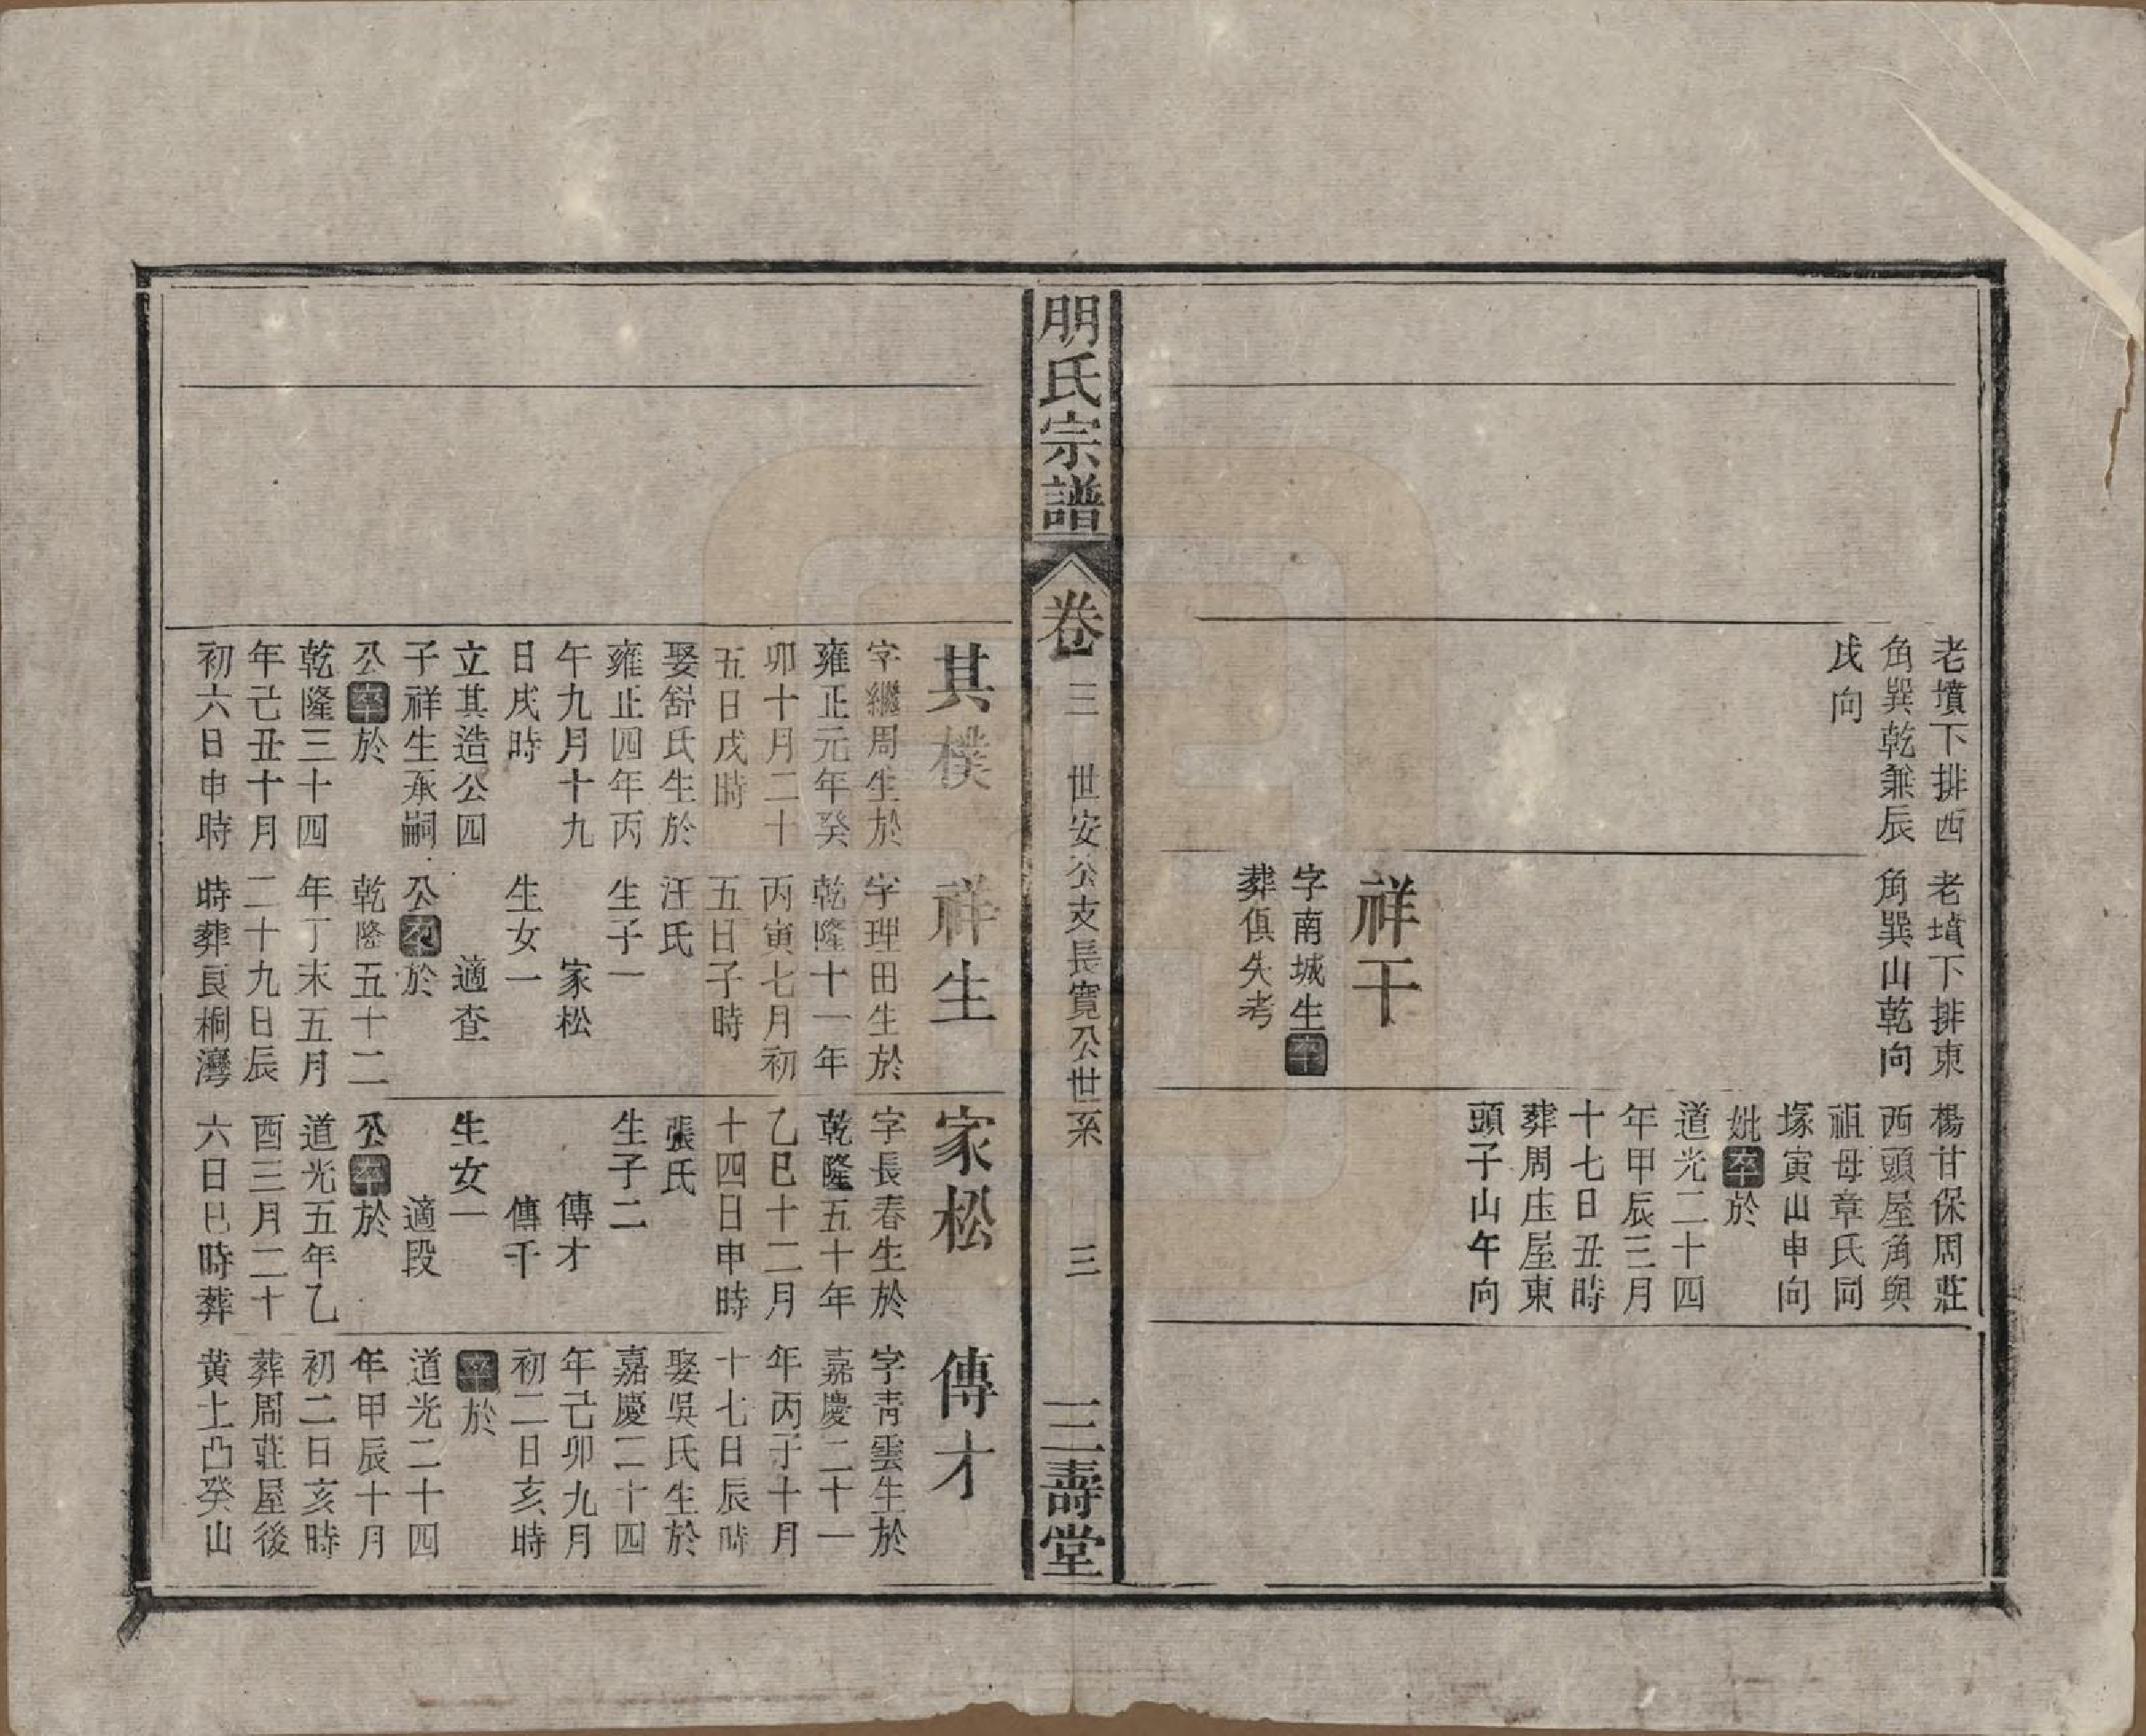 老墳下排西
角巽乾兼辰
戌向
老墳下排東
角巽山乾向
祥干
字南城生卒
葬俱失考
楊甘保周莊
西頭屋角與
祖母章氏同
塚寅山申向
妣卒於
道光二十四
年甲辰三月
十七日丑時
葬周庄屋東
頭子山午向
明氏宗譜
卷三
世安公支長寬公世系
三
三壽堂
其樸
字繼周生於
雍正元年癸
卯十月二十
五日戌時
娶舒氏生於
雍正四年丙
午九月十九
日戌時
立其造公四
子祥生承嗣
公卒於
乾隆三十四
年己丑十月
初六日申時
祥生
字理田生於
乾隆十一年
丙寅七月初
五日子時
汪氏
生子一
家松
生女一
適查
公卒於
乾隆五十二
年丁未五月
二十九日辰
時葬良桐灣
家松
字長春生於
乾隆五十年
乙巳十二月
十四日申時
張氏
生子二
傳才
傳千
生女一
適段
公卒於
道光五年乙
酉三月二十
六日巳時葬
傳才
字靑雲生於
嘉慶二十一
年丙子十月
十七日辰時
娶吳氏生於
嘉慶二十四
年己卯九月
初二日亥時
卒於
道光二十四
年甲辰十月
初二日亥時
葬周莊屋後
黄土凸癸山